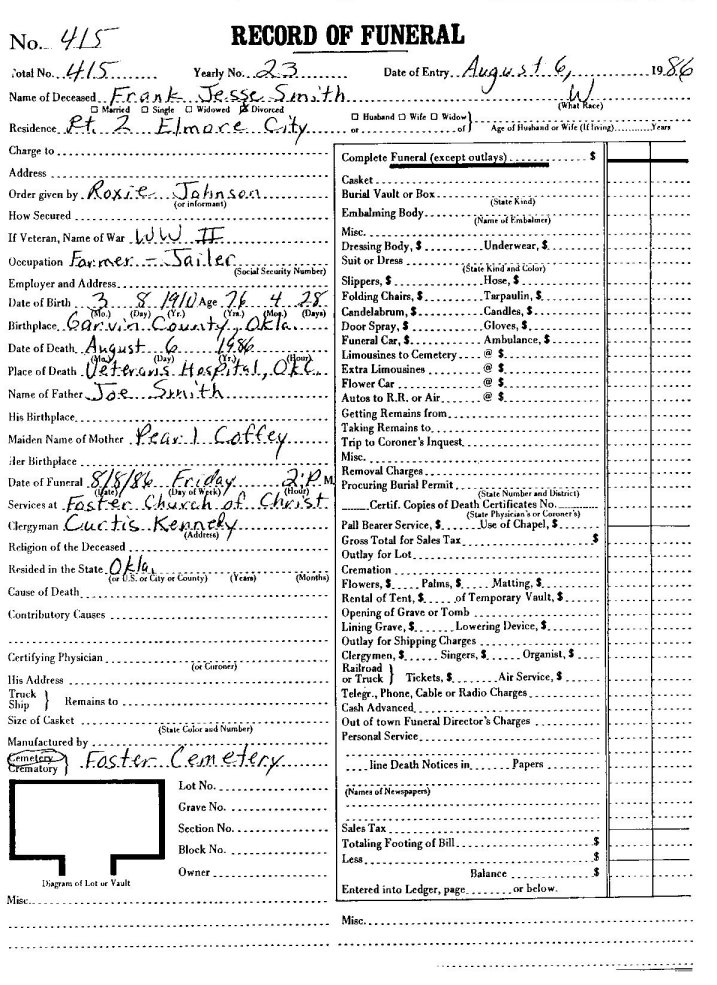 No. 415
RECORD OF FUNERAL
Total No. 415 Yearly No. 23 Date of Entry August 6, 1986
Name of Deceased Frank Jesse Smith W
☐ Married ☐ Single ☐ Widowed ☒ Divorced (What Race)
Residence Rt. 2 Elmore City
☐ Husband ☐ Wife ☐ Widow }
or of } Age of Husband or Wife (If living) Years
Charge to
Address
Order given by Roxie Johnson
(or informant)
How Secured
If Veteran, Name of War WW II
Occupation Farmer - Jailer
(Social Security Number)
Employer and Address
Date of Birth 3 8 1910 Age 76 4 28
(Mo.) (Day) (Yr.) (Yrs.) (Mos.) (Days)
Birthplace Garvin County, Okla.
Date of Death August 6 1986
(Mo.) (Day) (Yr.) (Hour)
Place of Death Veterans Hospital, OKC
Name of Father Joe Smith
His Birthplace
Maiden Name of Mother Pearl Coffey
Her Birthplace
Date of Funeral 8/8/86 Friday 2:P M.
(Date) (Day of Week) (Hour)
Services at Foster Church of Christ
Clergyman Curtis Kennedy
(Address)
Religion of the Deceased
Resided in the State Okla.
(or U.S. or City or County) (Years) (Months)
Cause of Death
Contributory Causes
Certifying Physician
(or Coroner)
His Address
Truck }
Ship } Remains to
Size of Casket
(State Color and Number)
Manufactured by
Cemetery }
Crematory } Foster Cemetery
Lot No.
Grave No.
Section No.
Block No.
Owner
Diagram of Lot or Vault
Misc.
Complete Funeral (except outlays) $
Casket
Burial Vault or Box
(State Kind)
Embalming Body
(Name of Embalmer)
Misc.
Dressing Body, $ Underwear, $
Suit or Dress
(State Kind and Color)
Slippers, $ Hose, $
Folding Chairs, $ Tarpaulin, $
Candelabrum, $ Candles, $
Door Spray, $ Gloves, $
Funeral Car, $ Ambulance, $
Limousines to Cemetery @ $
Extra Limousines @ $
Flower Car @ $
Autos to R.R. or Air @ $
Getting Remains from
Taking Remains to
Trip to Coroner's Inquest
Misc.
Removal Charges
Procuring Burial Permit
(State Number and District)
Certif. Copies of Death Certificates No.
(State Physician's or Coroner's)
Pall Bearer Service, $ Use of Chapel, $
Gross Total for Sales Tax $
Outlay for Lot
Cremation
Flowers, $ Palms, $ Matting, $
Rental of Tent, $ of Temporary Vault, $
Opening of Grave or Tomb
Lining Grave, $ Lowering Device, $
Outlay for Shipping Charges
Clergymen, $ Singers, $ Organist, $
Railroad }
or Truck } Tickets, $ Air Service, $
Telegr., Phone, Cable or Radio Charges
Cash Advanced
Out of town Funeral Director's Charges
Personal Service
line Death Notices in Papers
(Names of Newspapers)
Sales Tax
Totaling Footing of Bill $
Less $
Balance $
Entered into Ledger, page or below.
Misc.